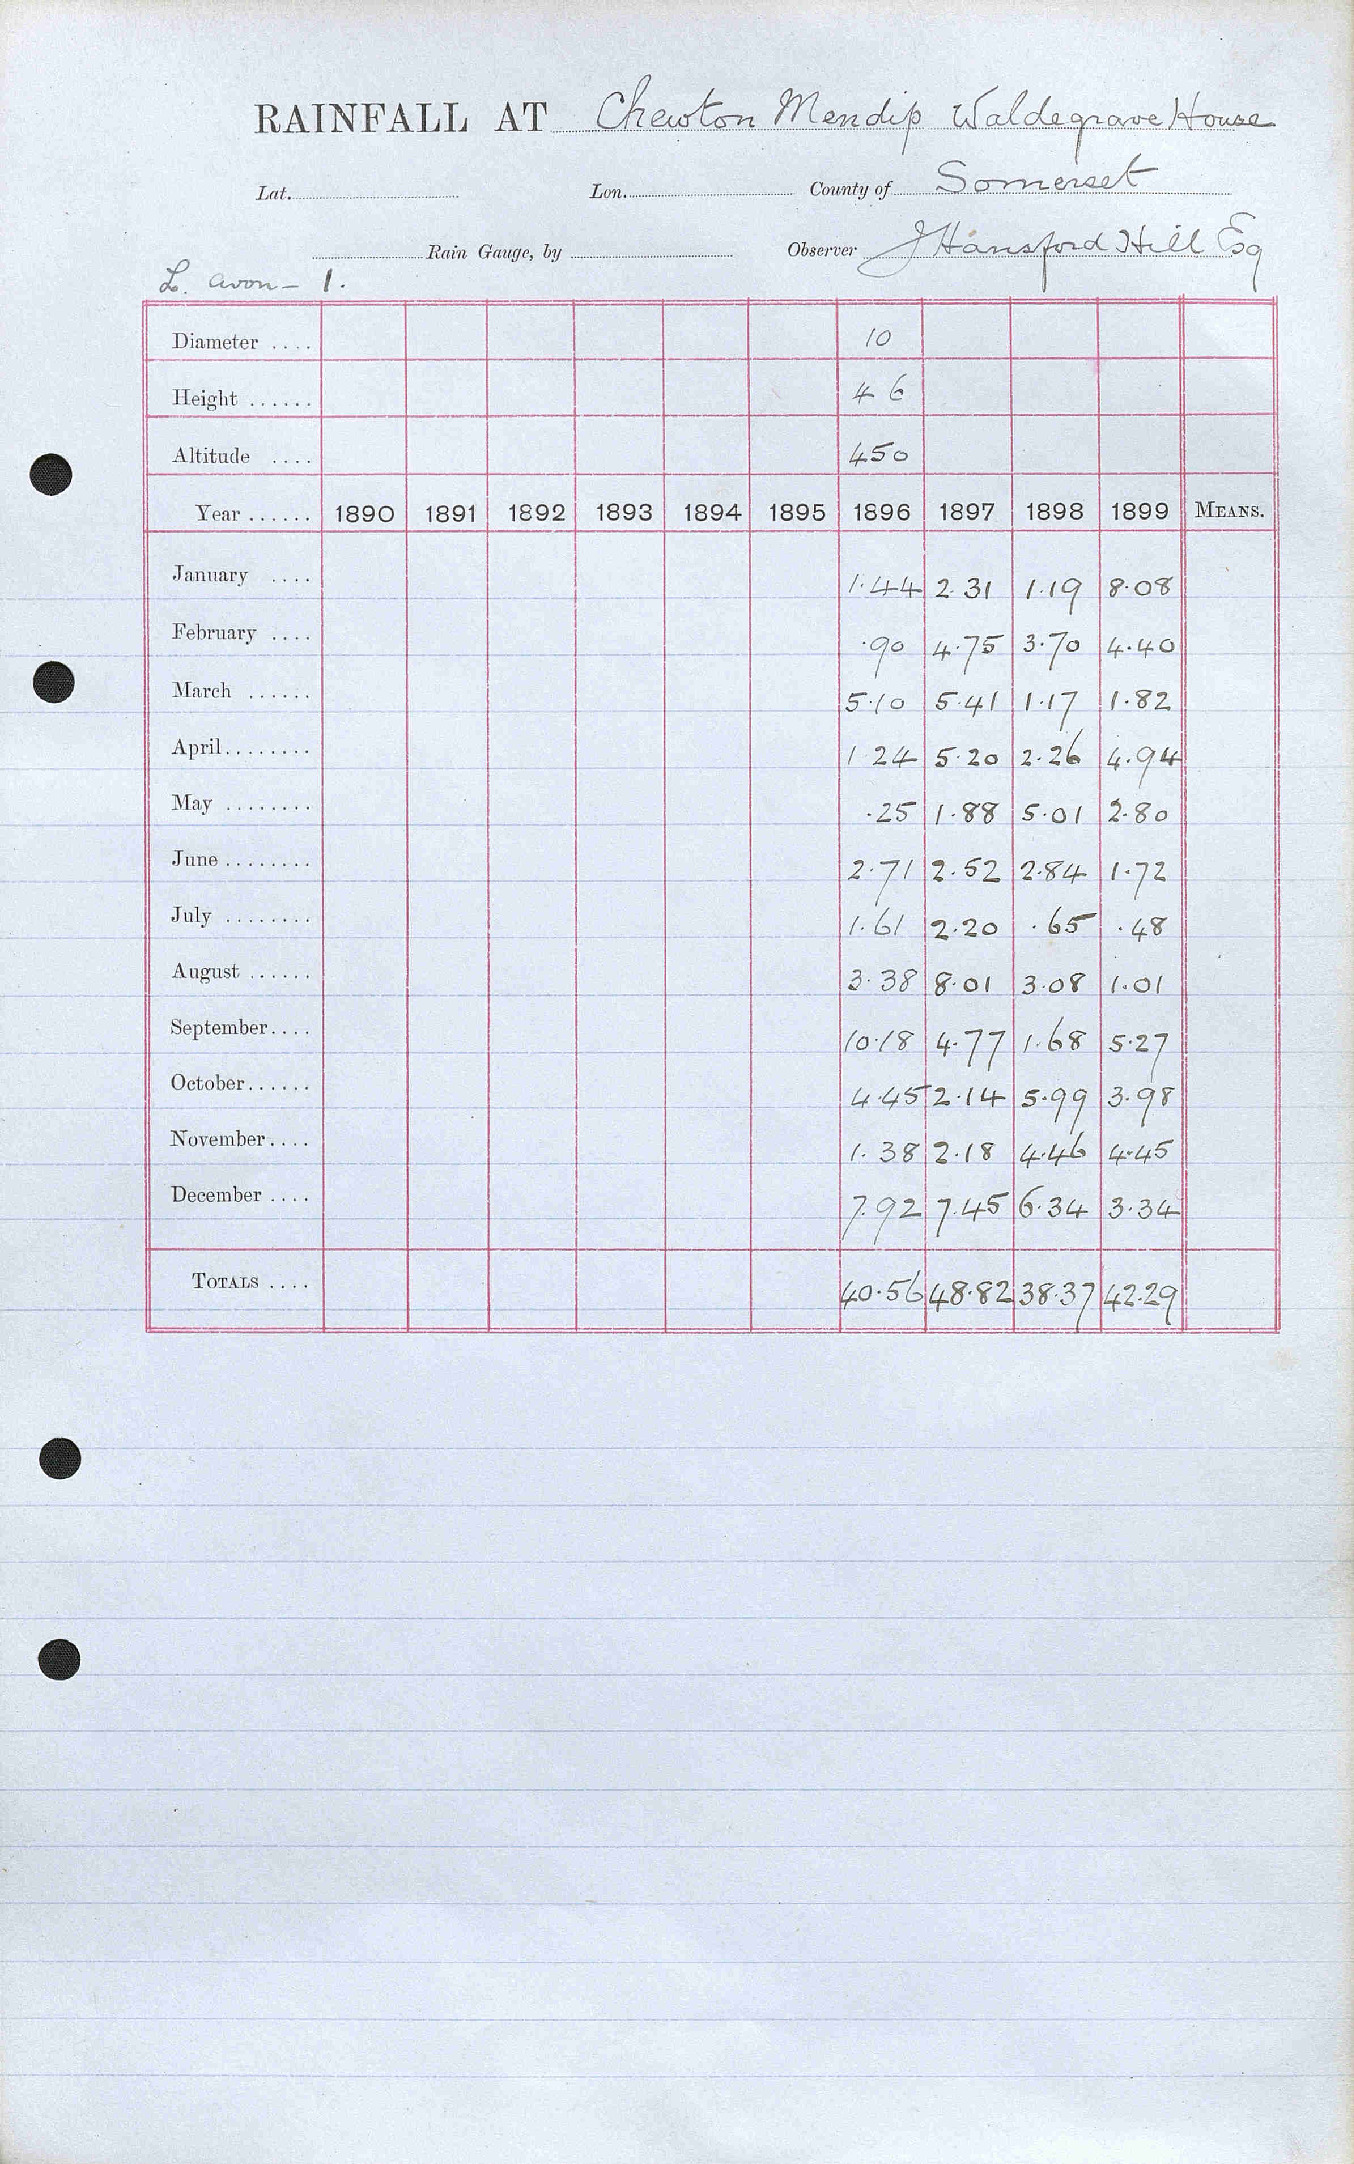 RAINFALL AT Chewton Mendip Waldegrave House
Lat. Lon. County of Somerset
Rain Gauge, by Observer J Hansford Hill Esq
L. Avon – 1.
Diameter .... 10
Height ...... 4 6
Altitude .... 450
Year ...... 1890 1891 1892 1893 1894 1895 1896 1897 1898 1899 MEANS.
January .... 1.44 2.31 1.19 8.08
February .... .90 4.75 3.70 4.40
March ...... 5.10 5.41 1.17 1.82
April ........ 1 24 5.20 2.26 4.94
May ........ .25 1.88 5.01 2.80
June ........ 2.71 2.52 2.84 1.72
July ........ 1.61 2.20 .65 .48
August ...... 3.38 8.01 3.08 1.01
September.... 10.18 4.77 1.68 5.27
October...... 4.45 2.14 5.99 3.98
November.... 1.38 2.18 4.46 4.45
December .... 7.92 7.45 6.34 3.34
TOTALS .... 40.56 48.82 38.37 42.29